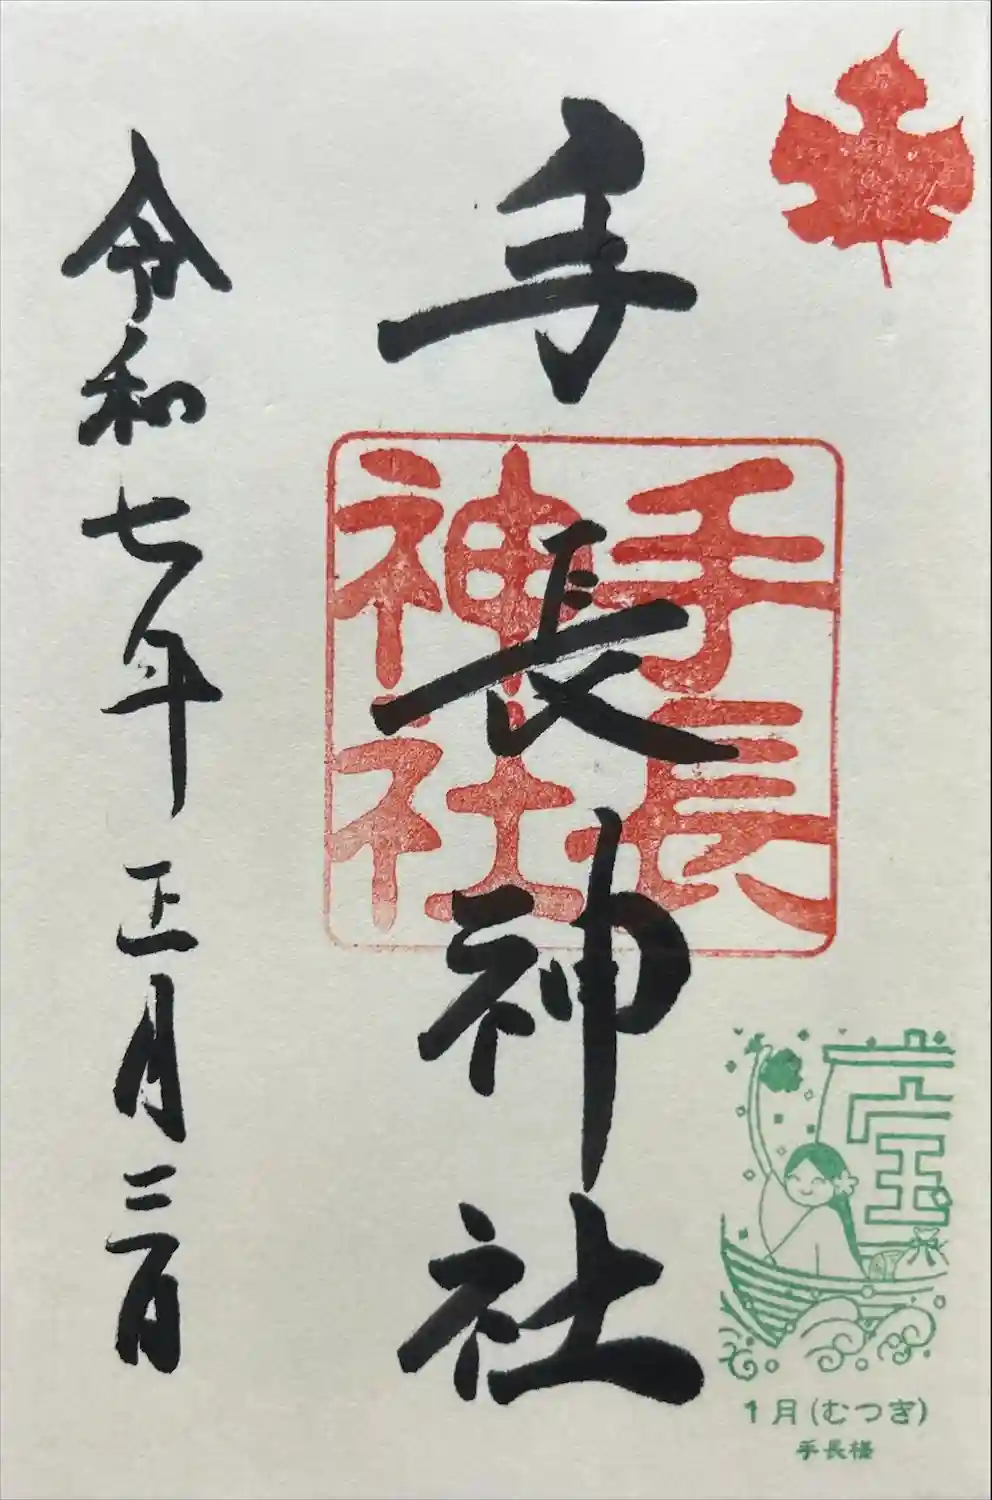 手長神社
手長
神社
1月(むつき)
手長様
令和七年正月二日